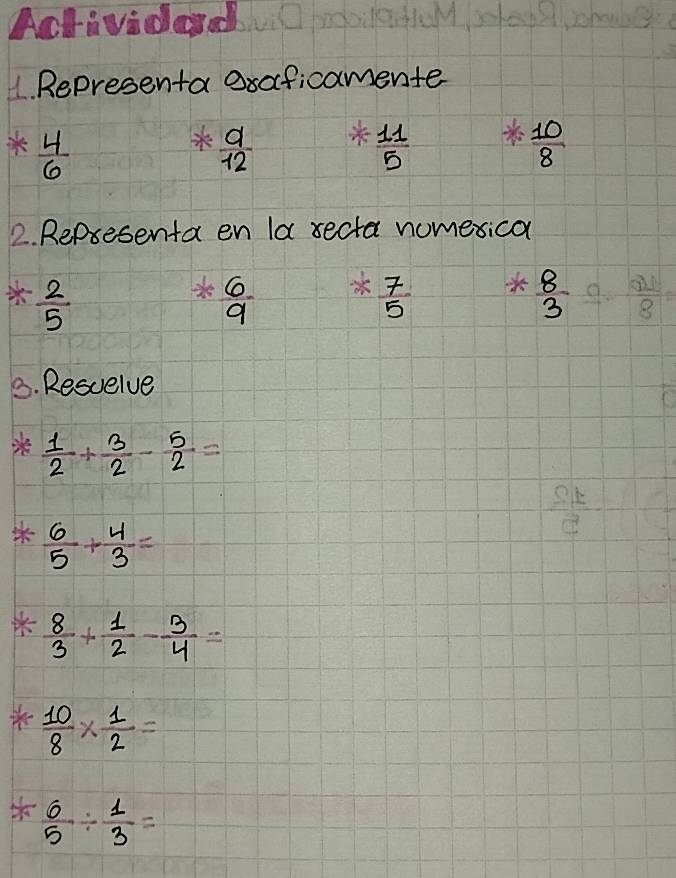 Actividad
1. Representa graficamente
* 4/6 * 9/12 * 11/5 * 10/8
2. Representa en la recta numerica
* 2/5 * 6/9 * 7/5 * 8/3
3. Resuelve
* 1/2 + 3/2 - 5/2 =
* 6/5 + 4/3 =
* 8/3 + 1/2 - 3/4 =
* 10/8 × 1/2 =
* 6/5 ÷ 1/3 =